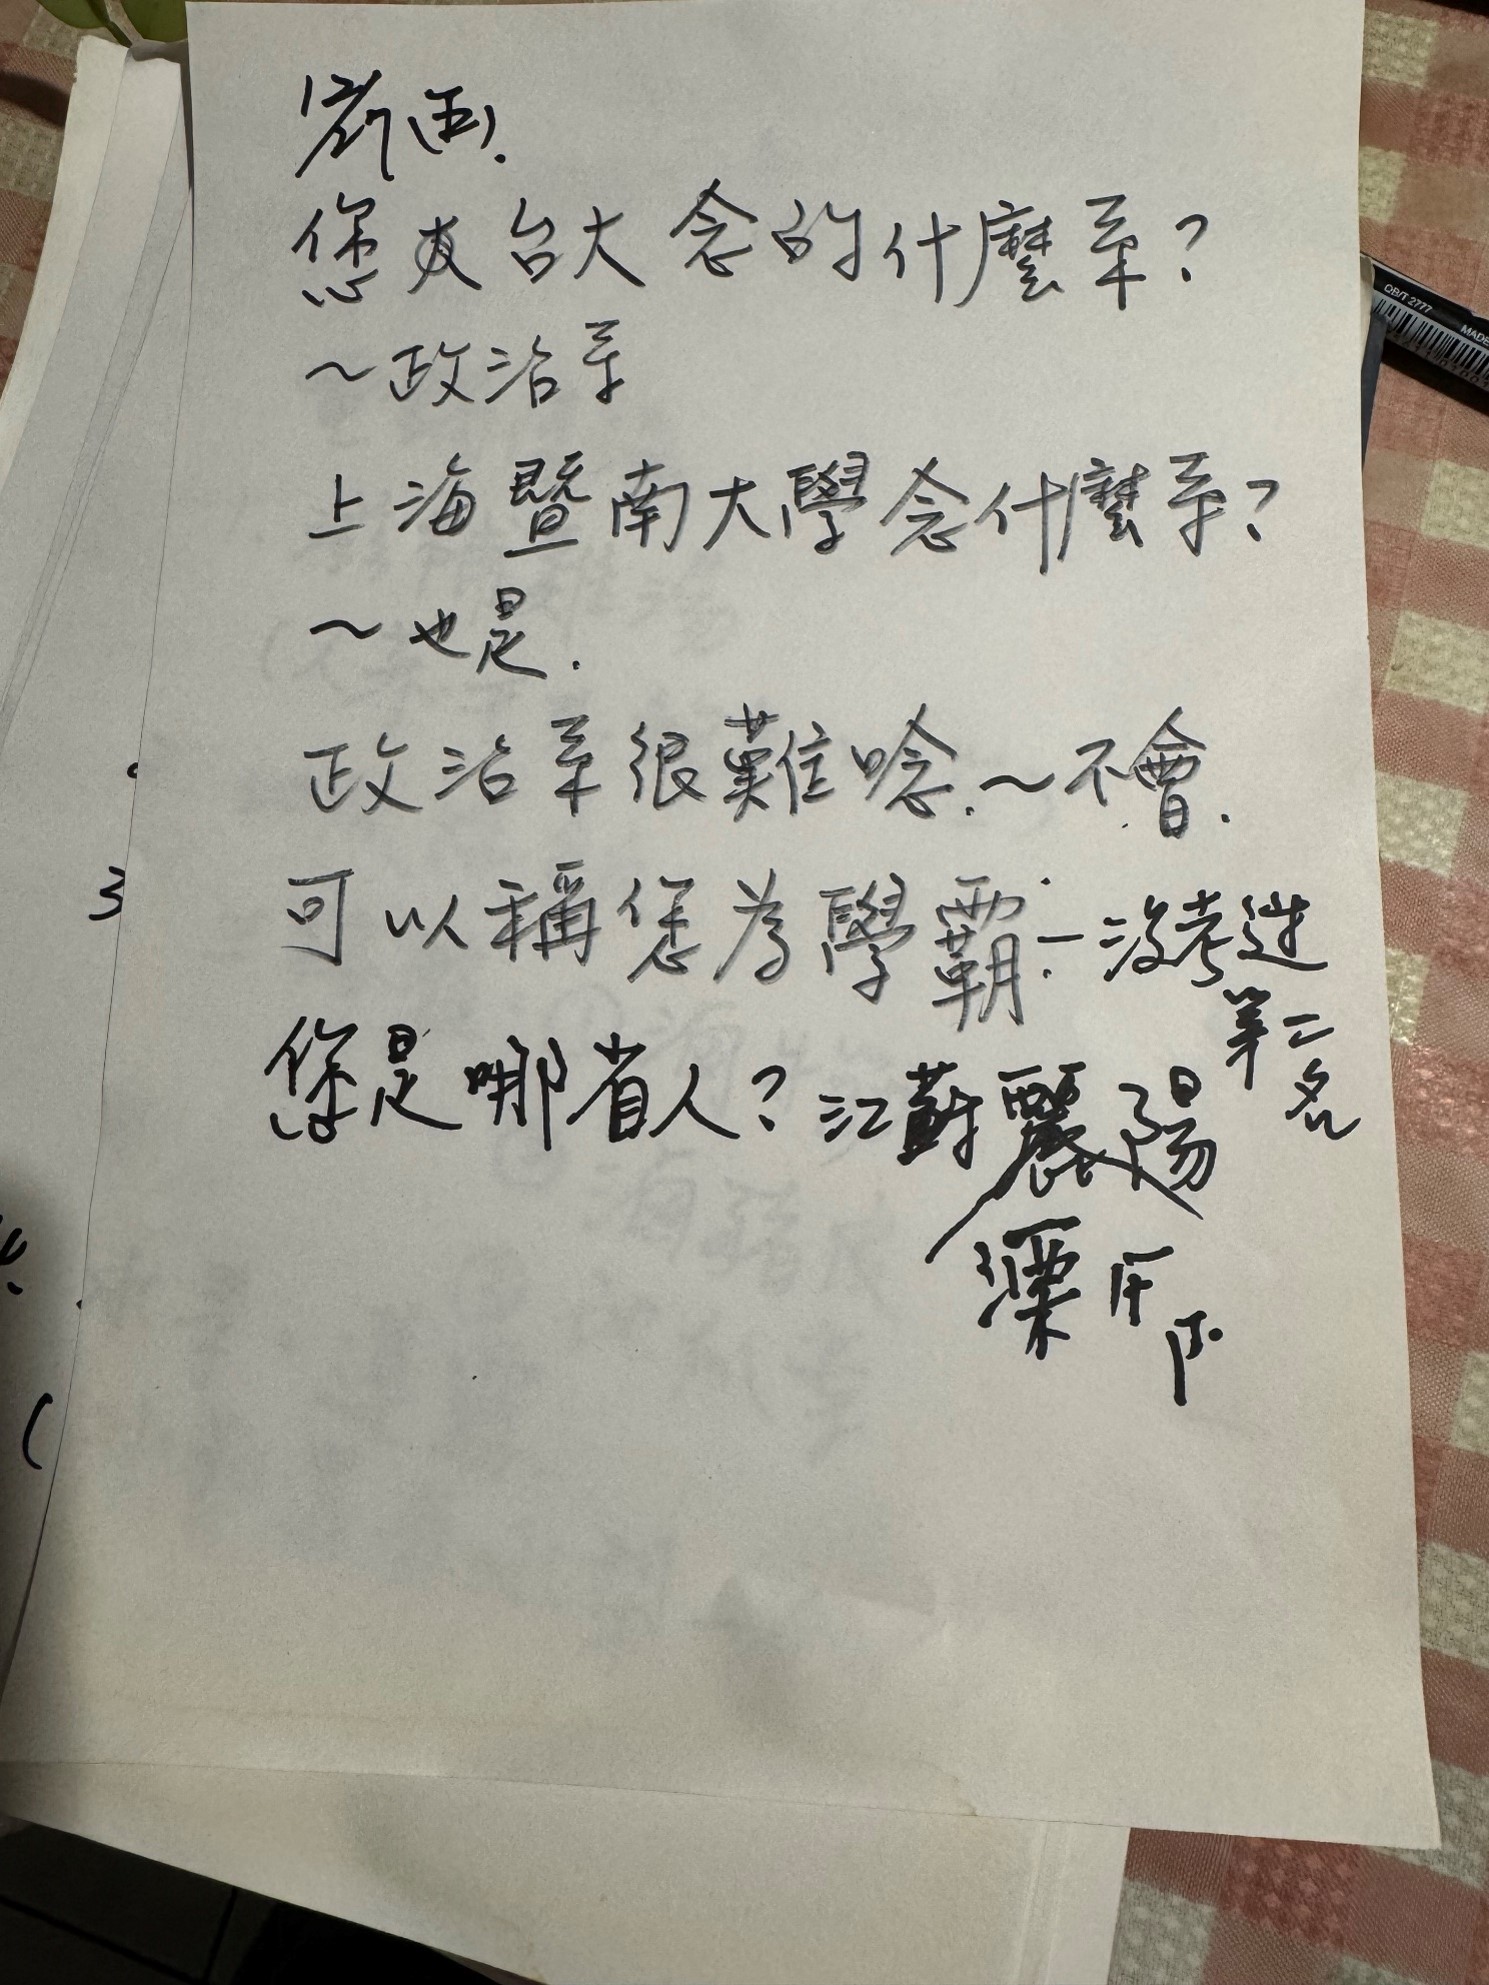 您在台大念的什麼系?
~政治系
上海暨南大學念什麼系?
~也是.
政治系很難唸.~不會.
可以稱您為學霸:一沒考過
第二名
您是哪省人?江蘇 陽
溧
QB/T 2777